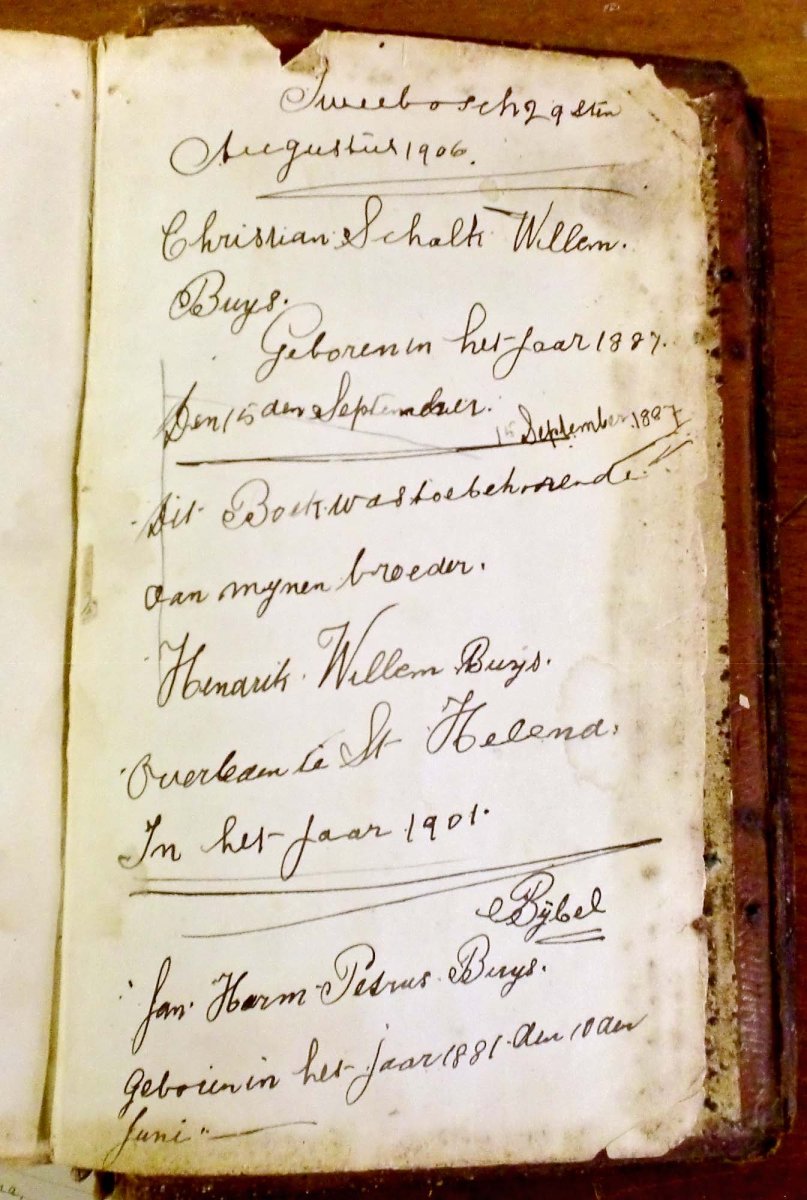 Tweebosch 29sten
Augustus 1906.
Christian Schalk Willem.
Buys.
Geboren in het Jaar 1887.
Den 15den September.
15 September 1887
Dit Boek was toebehoorende
aan mynen broeder.
Hendrik Willem Buys.
Overleden te St Helena.
In het Jaar 1901.
Bÿbel
Jan Harm Petrus Buys.
Geboren in het jaar 1881 den 10den
Juni